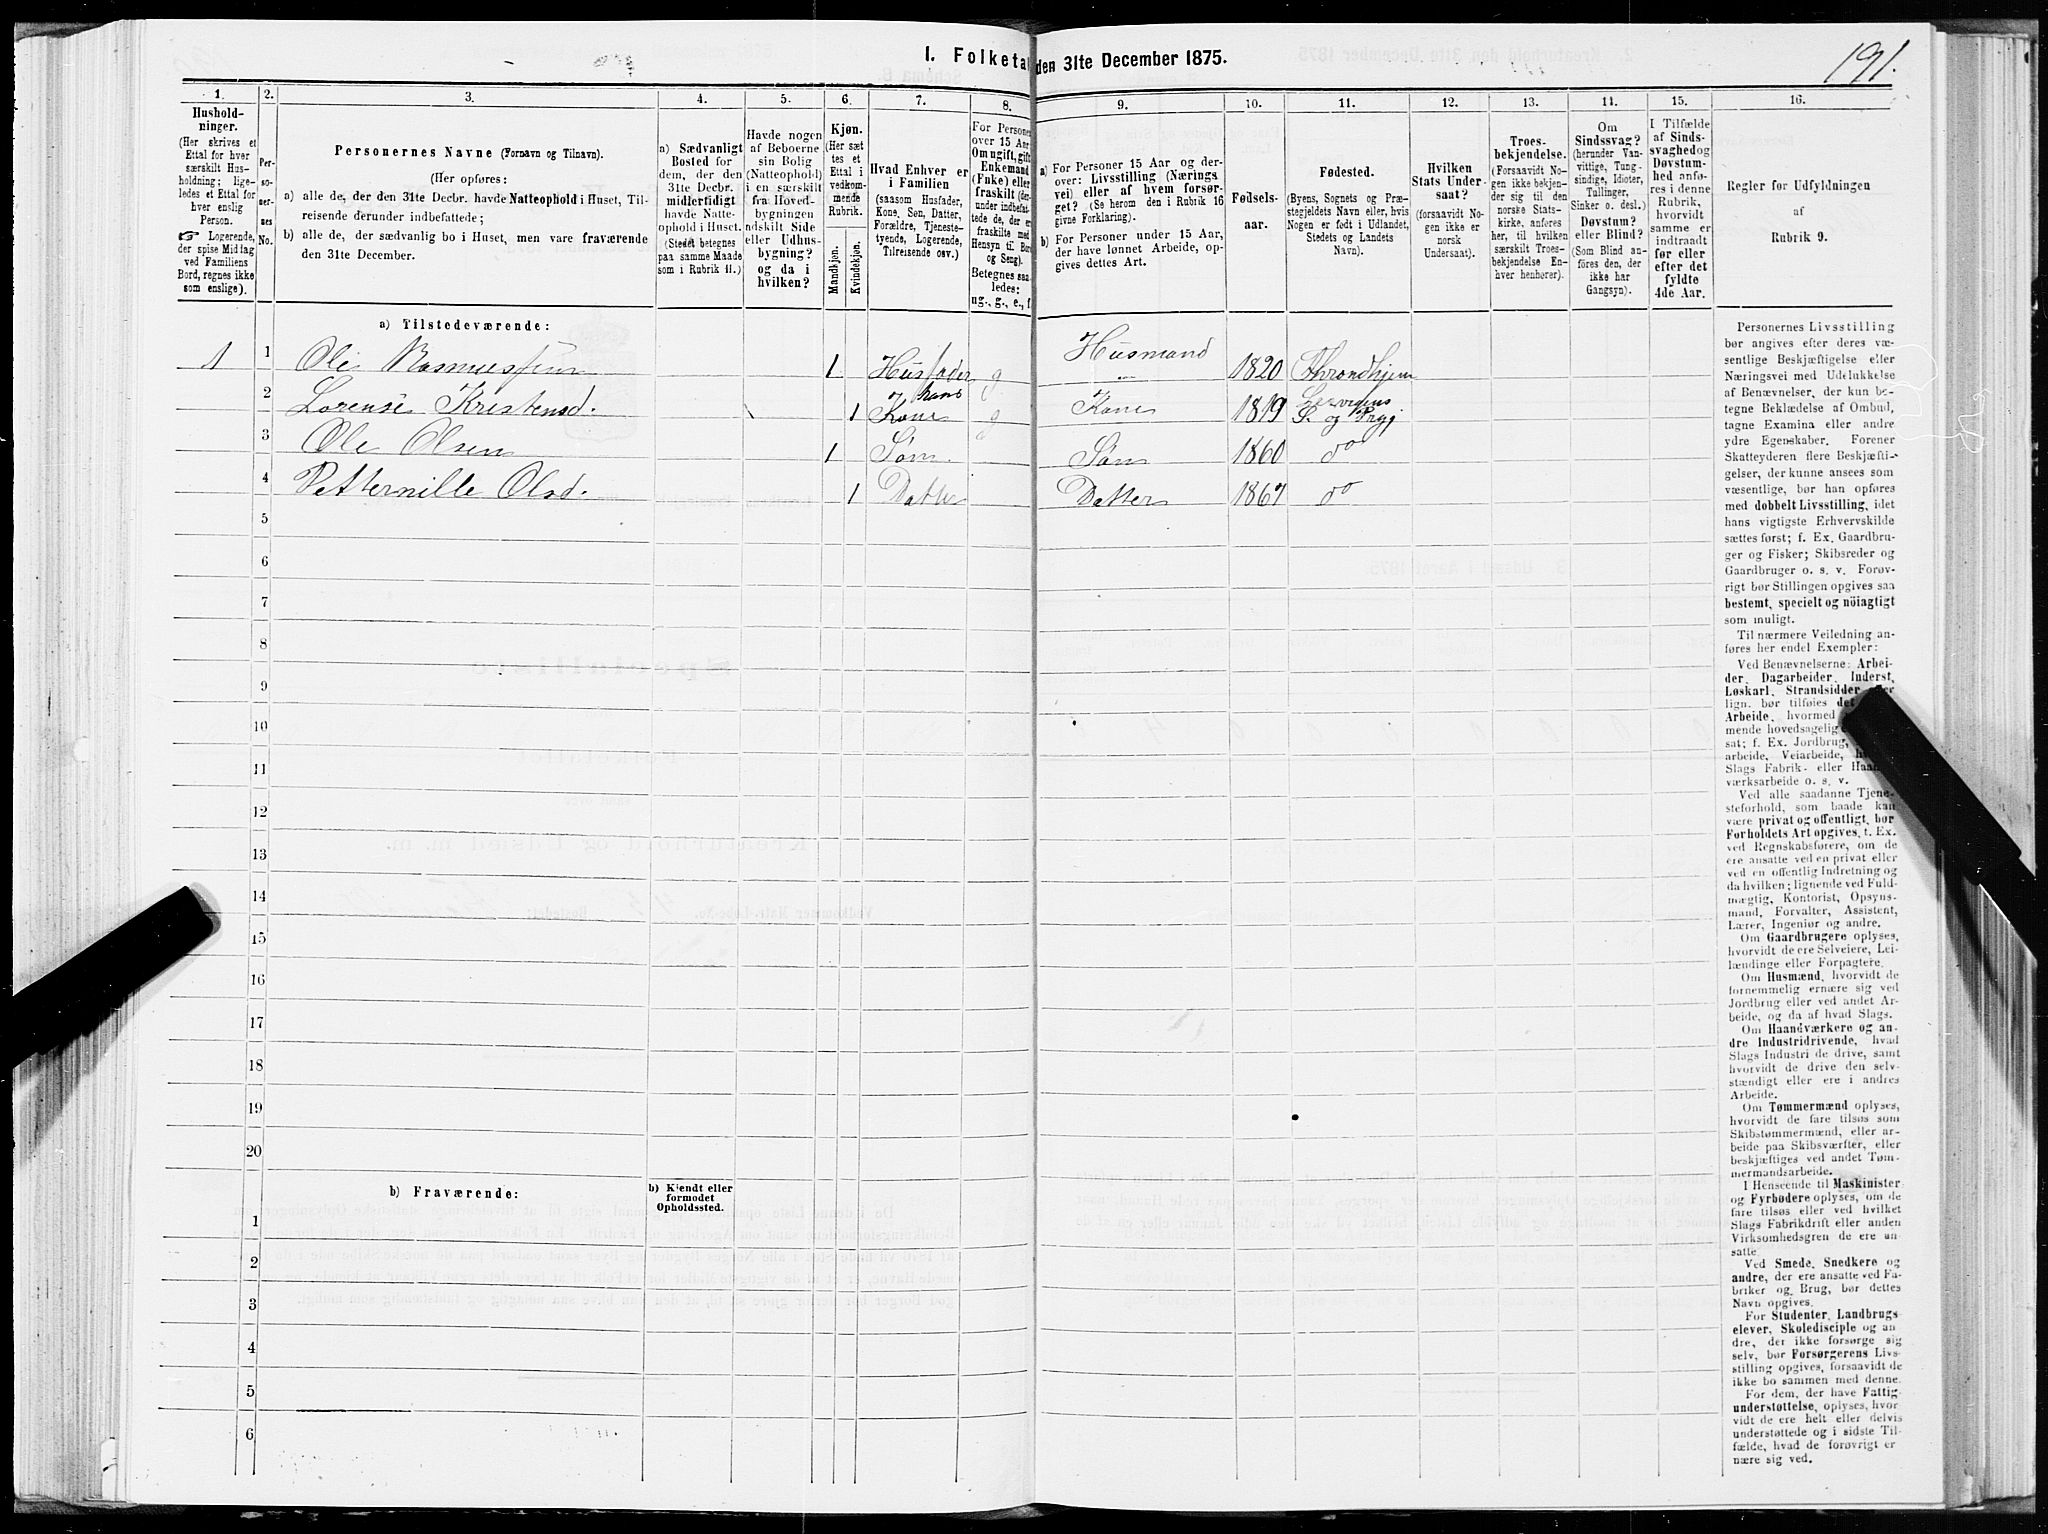 I. Folketal den 31te December 1875.
191.
1.
2.
3.
4.
5.
6.
7.
8.
9.
10.
11.
12.
13.
14.
15.
16.
Hushold-
ninger.
(Her skrives et
Ettal for hver
særskilt Hus-
holdning; lige-
ledes et Ettal for
hver enslig
Person.
☞ Logerende,
der spise Middag
ved Familiens
Bord, regnes ikke
som enslige).
Per-
so-
ner-
nes
No.
Personernes Navne (Fornavn og Tilnavn).
(Her opføres:
a) alle de, der den 31te Decbr. havde Natteophold i Huset, Til-
reisende derunder indbefattede;
b) alle de, der sædvanlig bo i Huset, men vare fraværende
den 31te December.
a) Sædvanligt
Bosted for
dem, der den
31te Decbr.
midlertidigt
havde Natte-
ophold i Huset.
(Stedet betegnes
paa samme Maade
som i Rubrik 11.)
Havde nogen
af Beboerne
sin Bolig
(Natteophold)
i en særskilt
fra Hoved-
bygningen
adskilt Side
eller Udhus-
bygning?
og da i
hvilken?
Kjøn.
(Her sæt-
tes et
Ettal i
vedkom-
mende
Rubrik.
Mandkjøn.
Kvindekjøn.
Hvad Enhver er
i Familien
(saasom Husfader,
Kone, Søn, Datter,
Forældre, Tjeneste-
tyende, Logerende,
Tilreisende osv.)
For Personer
over 15 Aar
Om ugift, gift,
Enkemand
(Enke) eller
fraskilt (der-
under indbefat-
tede de, der ere
fraskilte med
Hensyn til Bord
og Seng).
Betegnes saa-
ledes:
ug., g., e., f.
a) For Personer 15 Aar og der-
over: Livsstilling (Nærings-
vei) eller af hvem forsør-
get? (Se herom den i Rubrik 16
givne Forklaring).
b) For Personer under 15 Aar,
der have lønnet Arbeide, op-
gives dettes Art.
Fødsels-
aar.
Fødested.
(Byens, Sognets og Præ-
stegjeldets Navn eller, hvis
Nogen er født i Udlandet,
Stedets og Landets
Navn).
Hvilken
Stats Under-
saat?
(forsaavidt No-
gen ikke er
norsk
Undersaat).
Troes-
bekjendelse.
(Forsaavidt No-
gen ikke bekjen-
der sig til den
norske Stats-
kirke, anføres
her, til hvilken
særskilt Troes-
bekjendelse En-
hver henhører).
Om
Sindssvag?
(herunder Van-
vittige, Tung-
sindige, Idioter,
Tullinger,
Sinker o. desl.)
Døvstum?
eller Blind?
(Som Blind an-
føres den, der
ikke har
Gangsyn).
I Tilfælde
af Sinds-
svaghed og
Døvstum-
hed anfø-
res i denne
Rubrik,
hvorvidt
samme er
indtraadt
før eller
efter det
fyldte
4de Aar.
Regler for Udfyldningen
af
Rubrik 9.
a) Tilstedeværende:
1 1 Ole Rasmussen 1 Husfader g Husmand 1820 Throndhjem
2 Lorense Kristensd. 1 hans Kone g Kone 1819 S. og Prgj
3 Ole Olsen 1 Søn Søn 1860 do
4 Petternille Olsd. 1 Datter Datter 1867 do
5
6
7
8
9
10
11
12
13
14
15
16
17
18
19
20
b) Fraværende:
b) Kjendt eller
formodet
Opholdssted.
1
2
3
4
5
6
Personernes Livsstilling
bør angives efter deres væ-
sentlige Beskjæftigelse eller
Næringsvei med Udelukkelse
af Benævnelser, der kun be-
tegne Beklædelse af Ombud,
tagne Examina eller andre
ydre Egenskaber. Forener
Skatteyderen flere Beskjæfti-
gelser, der kunne ansees som
væsentlige, bør han opføres
med dobbelt Livsstilling, idet
hans vigtigste Erhvervskilde
sættes først; f. Ex. Gaardbru-
ger og Fisker; Skibsreder og
Gaardbruger o. s. v. Forøv-
rigt bør Stillingen opgives saa
bestemt, specielt og nöiagtigt
som muligt.
Til nærmere Veiledning an-
føres her endel Exempler:
Ved Benævnelserne: Arbei-
der, Dagarbeider, Inderst,
Løskarl, Strandsidder eller
lign. bør tilføies det
Arbeide, hvormed
mende hovedsagelig
sat; f. Ex. Jordbrug,
arbeide, Veiarbeide,
Slags Fabrik- eller Haand-
værksarbeide o. s. v.
Ved alle saadanne Tjene-
steforhold, som baade kan
være privat og offentligt, bør
Forholdets Art opgives, t. Ex.
ved Regnskabsførere, om de
ere ansatte ved en privat eller
ved en offentlig Indretning og
da hvilken; lignende ved Fuld-
mægtig, Kontorist, Opsyns-
mand, Forvalter, Assistent,
Lærer, Ingeniør og andre.
Om Gaardbrugere oplyses,
hvorvidt de ere Selveiere, Lei-
lændinge eller Forpagtere.
Om Husmænd, hvorvidt de
fornemmelig ernære sig ved
Jordbrug eller ved andet Ar-
beide, og da af hvad Slags.
Om Haandværkere og an-
dre Industridrivende, hvad
Slags Industri de drive, samt
hvorvidt de drive den selv-
stændigt eller ere i andres
Arbeide.
Om Tømmermænd oplyses,
hvorvidt de fare tilsøs som
Skibstømmermænd, eller ar-
beide paa Skibsværfter, eller
beskjæftiges ved andet Tøm-
mermandsarbeide.
I Henseende til Maskinister
og Fyrbødere oplyses, om de
fare tilsøs eller ved hvilket
Slags Fabrikdrift eller anden
Virksomhedsgren de ere an-
satte.
Ved Smede, Snedkere og
andre, der ere ansatte ved Fa-
briker og Brug, bør dettes
Navn opgives.
For Studenter, Landbrugs-
elever, Skoledisciple og an-
dre, der ikke forsørge sig
selv, bør Forsørgerens Livs-
stilling opgives, forsaavidt de
ikke bo sammen med denne.
For dem, der have Fattig-
understøttelse, oplyses, hvor-
vidt de ere helt eller delvis
understøttede og i sidste Til-
fælde, hvad de forøvrigt er-
nære sig ved.